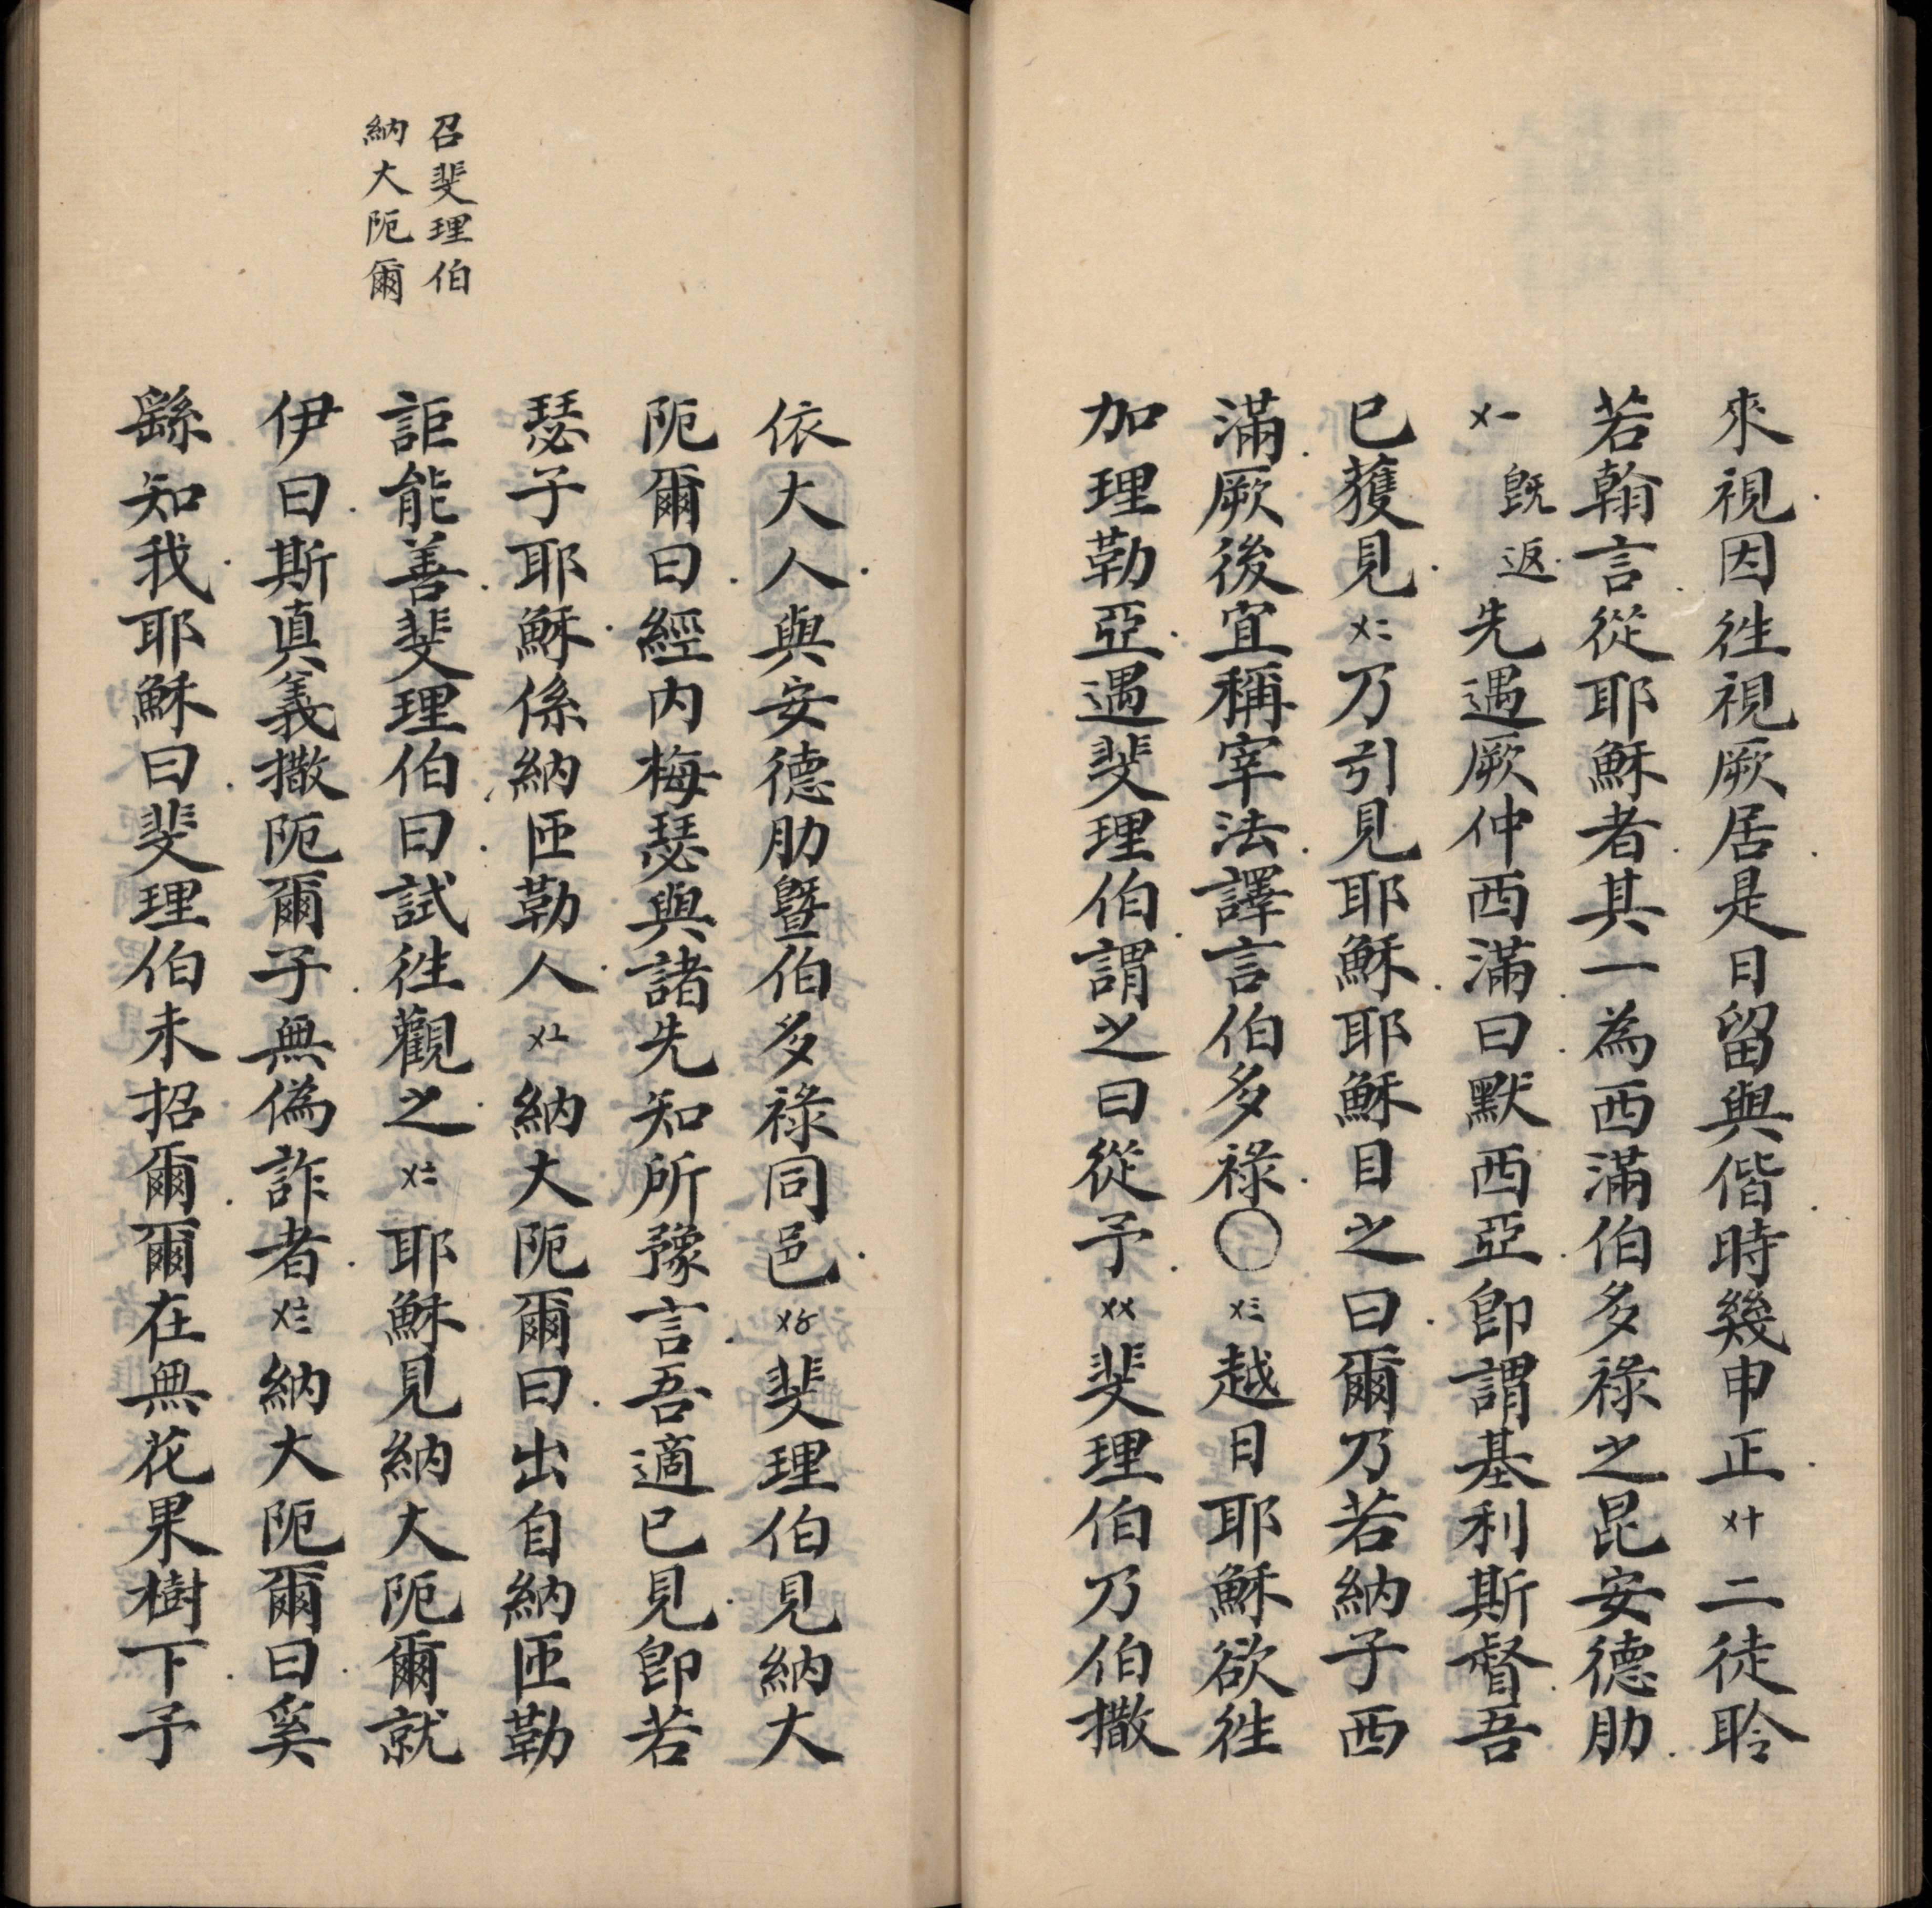 來視因徃視厥居是日留與偕時幾申正〤十二徒聆
若翰言從耶穌者其一為西滿伯多祿之昆安德肋
〤一既返先遇厥仲西滿曰默西亞即謂基利斯督吾
已獲見〤二乃引見耶穌耶穌目之曰爾乃若納子西
滿厥後宜稱宰法譯言伯多祿〇〤三越日耶穌欲徃
加理勒亞遇斐理伯謂之曰從予〤〤斐理伯乃伯撒
依大人與安德肋暨伯多祿同邑〤〥斐理伯見納大
阨爾曰經内梅瑟與諸先知所豫言吾適已見即若
瑟子耶穌係納匝勒人〤〦納大阨爾曰出自納匝勒
詎能善斐理伯曰試徃觀之〤〧耶穌見納大阨爾就
伊曰斯真義撒阨爾子無偽詐者〤〨納大阨爾曰奚
繇知我耶穌曰斐理伯未招爾爾在無花果樹下予
召斐理伯
納大阨爾